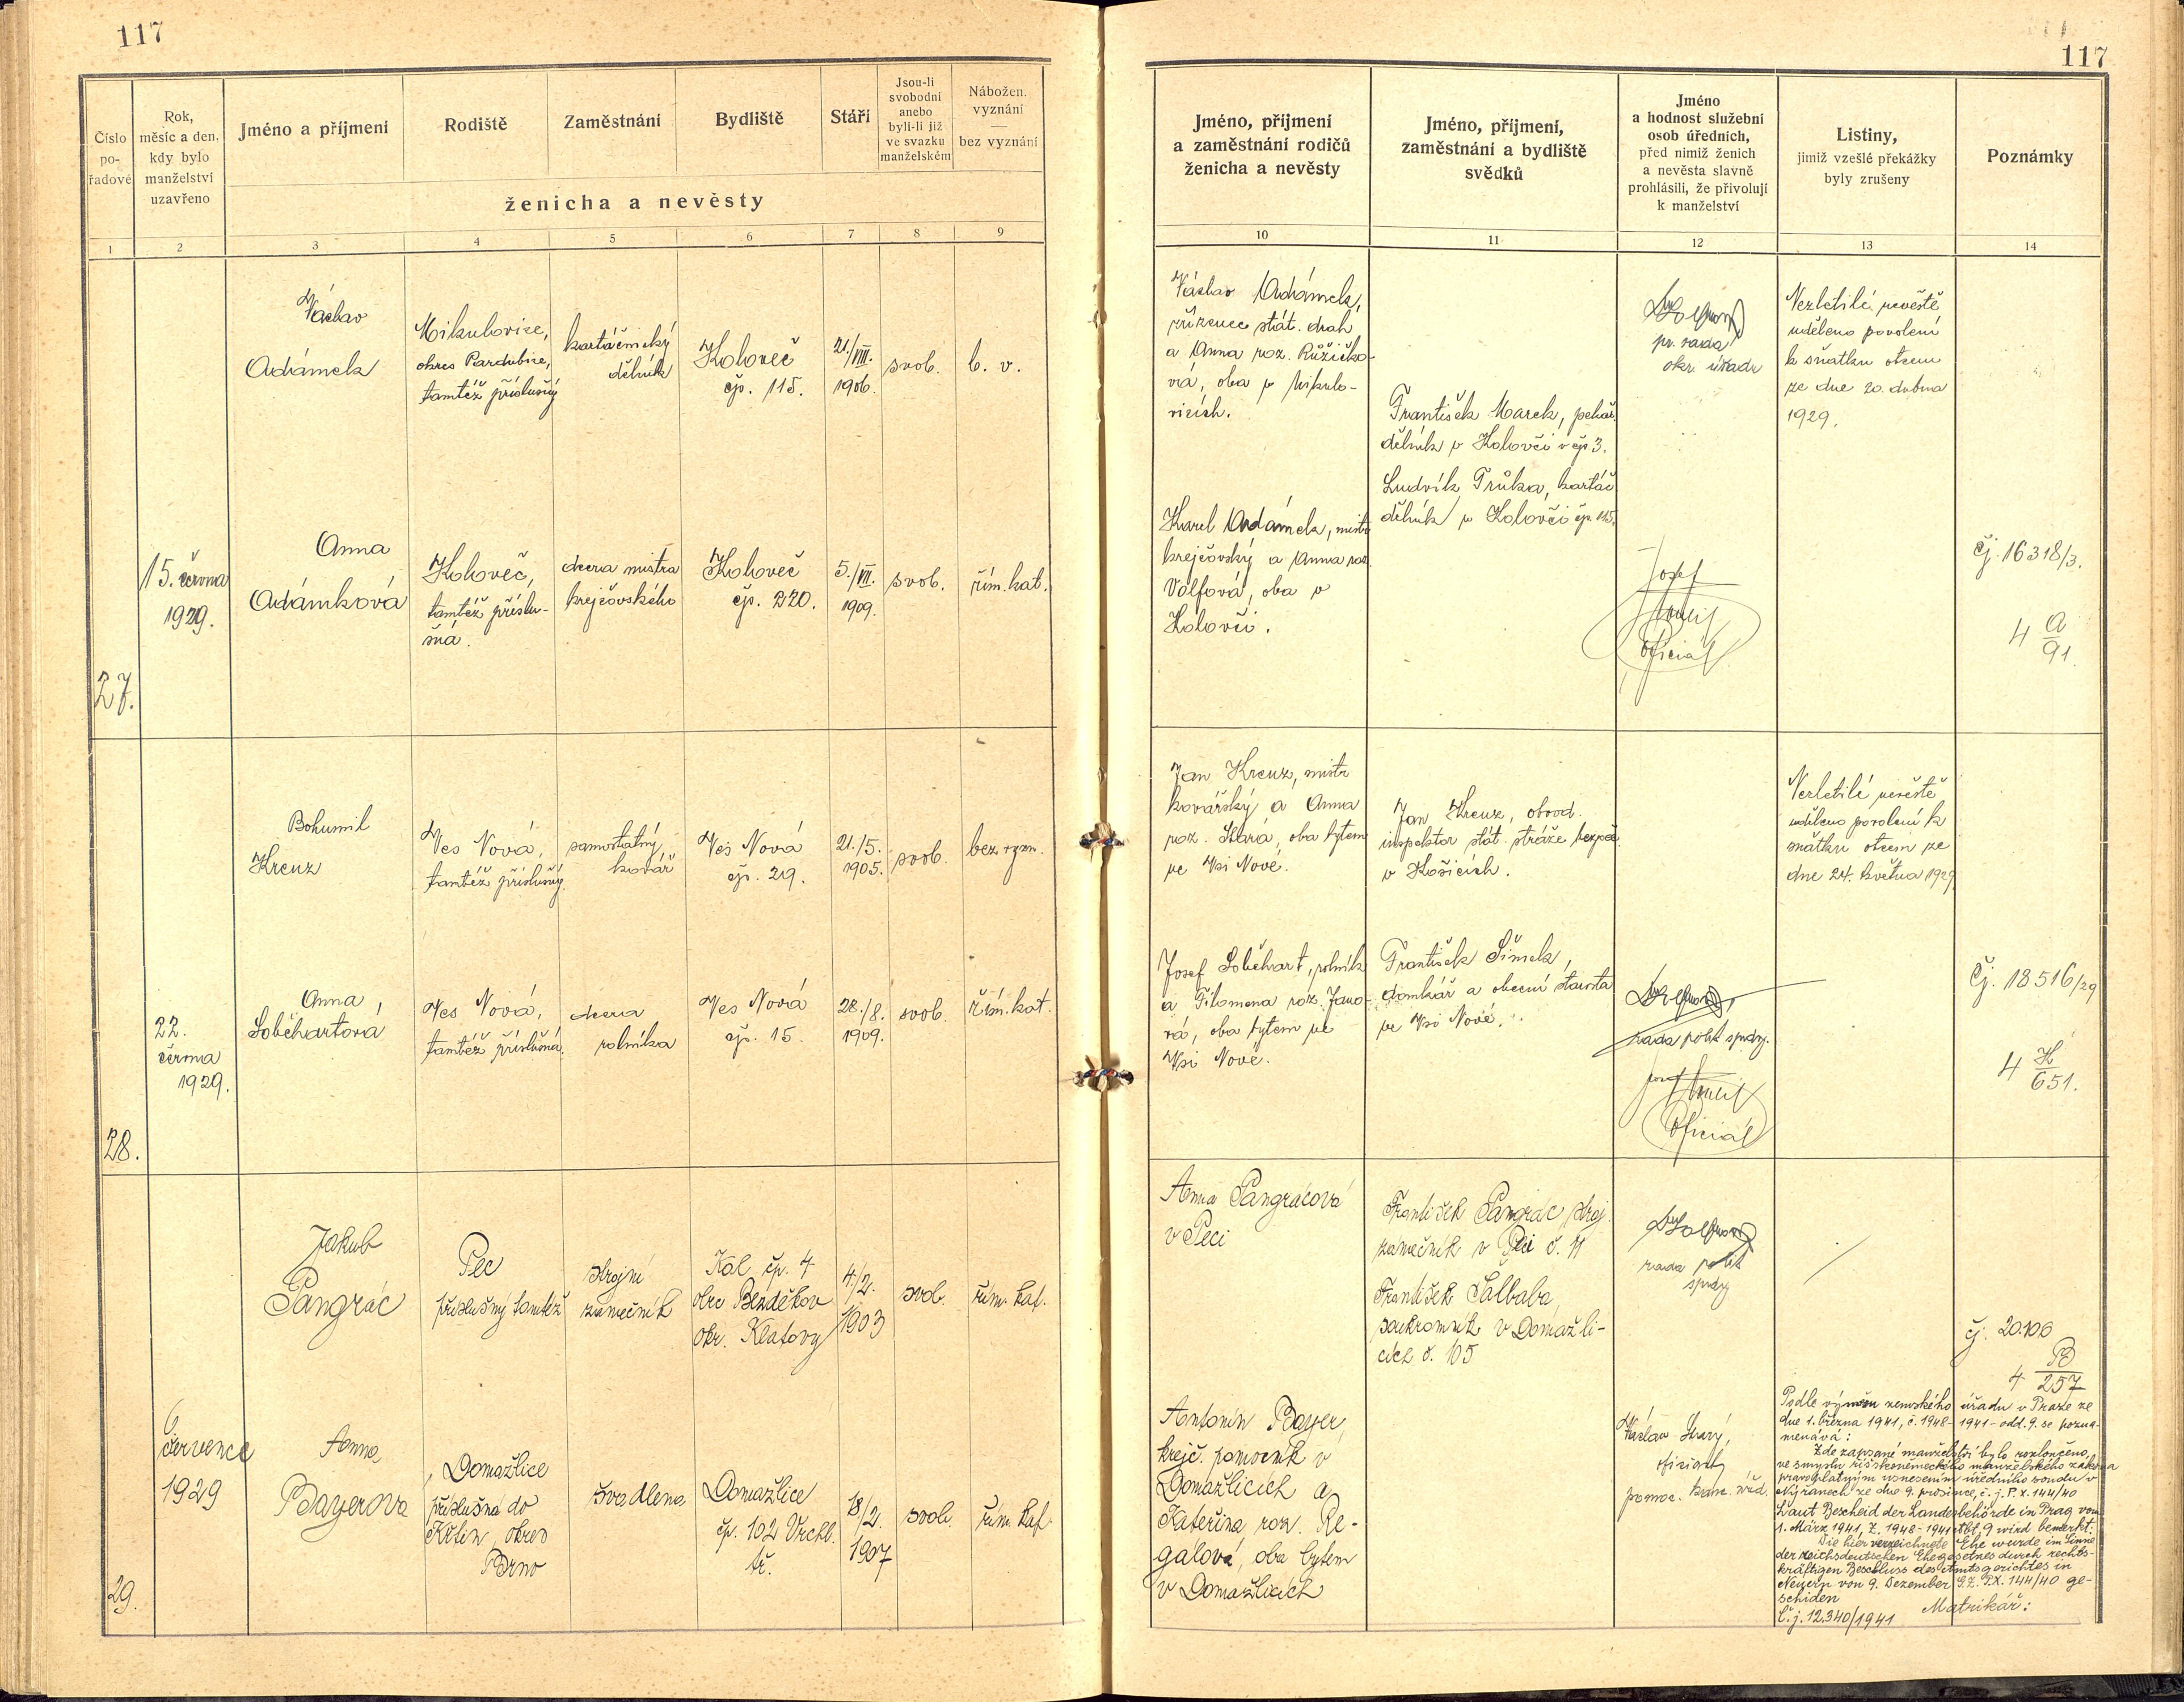 117
117
Číslo
po-
řadové
Rok,
měsíc a den,
kdy bylo
manželství
uzavřeno
Jméno a příjmení
Rodiště
Zaměstnání
Bydliště
Stáří
Jsou-li
svobodní
anebo
byli-li již
ve svazku
manželském
Nábožen.
vyznání
—
bez vyznání
ženicha a nevěsty
1 2 3 4 5 6 7 8 9
Jméno, příjmení
a zaměstnání rodičů
ženicha a nevěsty
Jméno, příjmení,
zaměstnání a bydliště
svědků
Jméno
a hodnost služební
osob úředních,
před nimiž ženich
a nevěsta slavně
prohlásili, že přivolují
k manželství
Listiny,
jimiž vzešlé překážky
byly zrušeny
Poznámky
10 11 12 13 14
27.
15. června
1929.
Václav
Adámek
Mikulovice,
okres Pardubice,
tamtéž příslušný
kartáčnický
dělník
Koloveč
čp. 115.
21./VIII.
1906.
svob.
b. v.
Anna
Adámková
Koloveč,
tamtéž příslu-
šná.
dcera mistra
krejčovského
Koloveč
čp. 220.
5./VII.
1909.
svob.
řím. kat.
Václav Adámek,
zřízenec stát. drah
a Anna roz. Růžičko-
vá, oba v Mikulo-
vicích.
Karel Adámek, mistr
krejčovský a Anna roz.
Volfová, oba v
Kolovči.
František Marek, pekař.
dělník v Kolovči v čp 3.
Ludvík Trůka, kartáč.
dělník v Kolovči čp. 115.
pr. rada
okr. úřadu
Josef
Oficiál
Nezletilé nevěstě
uděleno povolení
k sňatku otcem
ze dne 20. dubna
1929.
čj. 16318/3.
4 A/91.
28.
22.
června
1929.
Bohumil
Kreuz
Ves Nová,
tamtéž příslušný.
samostatný
kovář
Ves Nová
čp. 29.
21./5.
1905.
svob.
bez vyzn.
Anna
Soběhartová
Ves Nová,
tamtéž příslušná.
dcera
rolníka
Ves Nová
čp. 15.
28./8.
1909.
svob.
řím. kat.
Jan Kreuz, mistr
kovářský a Anna
roz. Stará, oba bytem
ve Vsi Nové.
Josef Soběhart, rolník
a Filomena roz. Jano-
vá, oba bytem ve
Vsi Nové.
Jan Kreuz, obvod.
inspektor stát. stráže bezpeč.
v Košicích.
František Šimek,
domkář a obecní starosta
ve Vsi Nové.
rada polit. správy.
Josef
Oficiál
Nezletilé nevěstě
uděleno povolení k
sňatku otcem ze
dne 24. května 1929
Čj. 18516/29
4 K/651.
29.
6.
července
1929
Jakub
Pangrác
Pec
příslušný tamtéž
strojní
zámečník
Kal čp. 4
obec Bezděkov
okr. Klatovy
4./2.
1903
svob.
řím. kat.
Anna
Bayerova
Domažlice
příslušná do
okres
Brno
švadlena
Domažlice
čp. 102 Vrchl.
tř.
18/2.
1907
svob.
řím. kat.
Anna Pangrácová
v Peci
Antonín Bayer,
krejč. pomocník v
Domažlicích a
Kateřina roz. Re-
galová, oba bytem
v Domažlicích
František Pangrác, stroj.
zámečník v Peci č. 11
František Šalbaba,
soukromník v Domažli-
cích č. 105
rada polit.
správy
Václav
oficiant
pomoc. kanc. úřad.
čj. 20.106
4 P/257
Podle výměru zemského úřadu v Praze ze
dne 1. března 1941, č. 1948-1941-odd. 9. se pozna-
menává:
Zde zapsané manželství bylo rozloučeno
ve smyslu říšskoněmeckého manželského zákona
pravoplatným usnesením úředního soudu v
Nýřanech ze dne 9. prosince, č. j. P. X. 144/40
Laut Bescheid der Landesbehörde in Prag vom
1. März 1941, Z. 1948-1941 Abt. 9 wird bemerkt:
Die hier verzeichnete Ehe wurde im Sinne
der reichsdeutschen Ehegesetzes durch rechts-
kräftigen Beschluss des Amtsgerichtes in
von 9. Dezember G.Z. P.X. 144/40 ge-
schiden
Č. j. 12.340/1941 Matrikář: